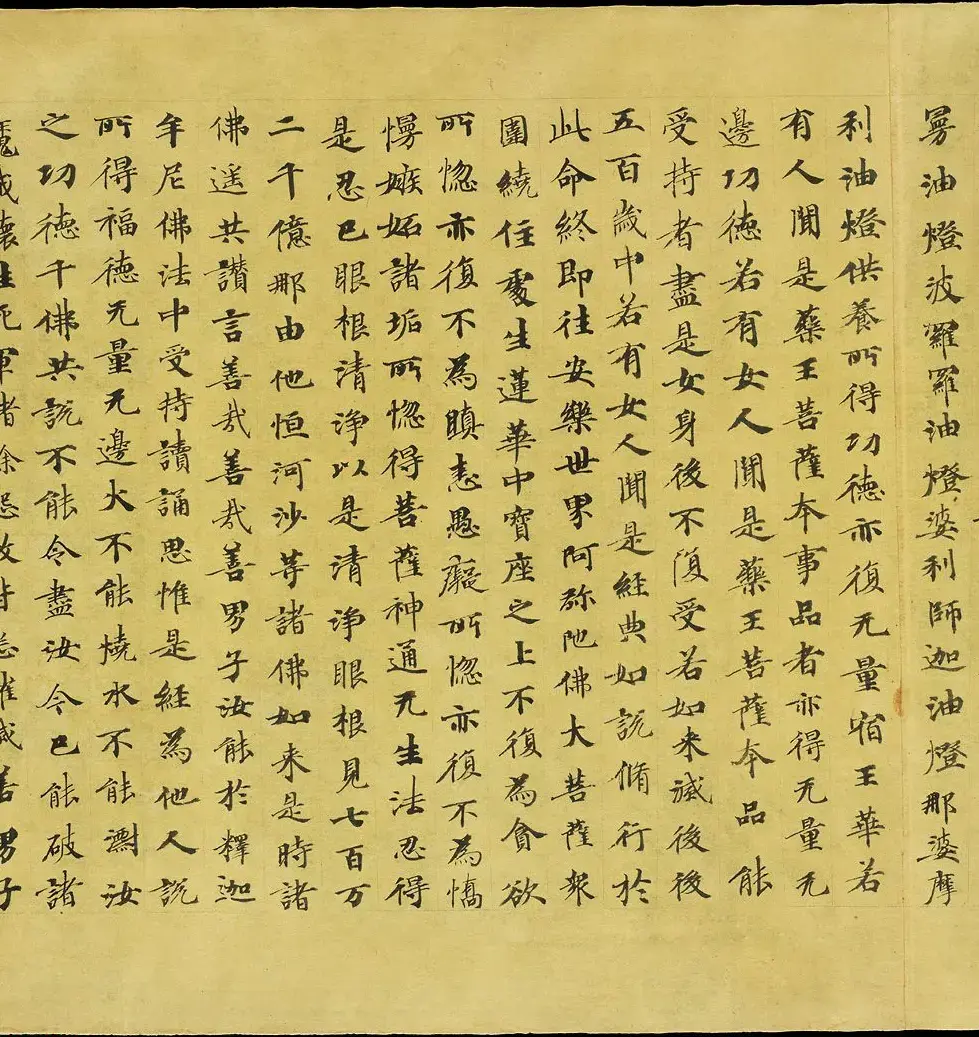 曼油燈波羅羅油燈婆利師迦油燈那婆摩
利油燈供養所得功德亦復无量宿王華若
有人聞是藥王菩薩本事品者亦得无量无
邊功德若有女人聞是藥王菩薩本品能
受持者盡是女身後不復受若如来滅後後
五百歲中若有女人聞是經典如說脩行於
此命終即往安樂世界阿弥陁佛大菩薩衆
圍繞住處生蓮華中寶座之上不復為貪欲
所惚亦復不為瞋恚愚癡所惚亦復不為憍
慢嫉妬諸垢所惚得菩薩神通无生法忍得
是忍已眼根清淨以是清淨眼根見七百万
二千億那由他恒河沙等諸佛如来是時諸
佛遥共讃言善哉善哉善男子汝能於釋迦
牟尼佛法中受持讀誦思惟是經為他人說
所得福德无量无邊火不能燒水不能㵱汝
之功德千佛共說不能令盡汝今已能破諸
魔賊壞生死軍諸餘怨敵皆悉摧滅善男子